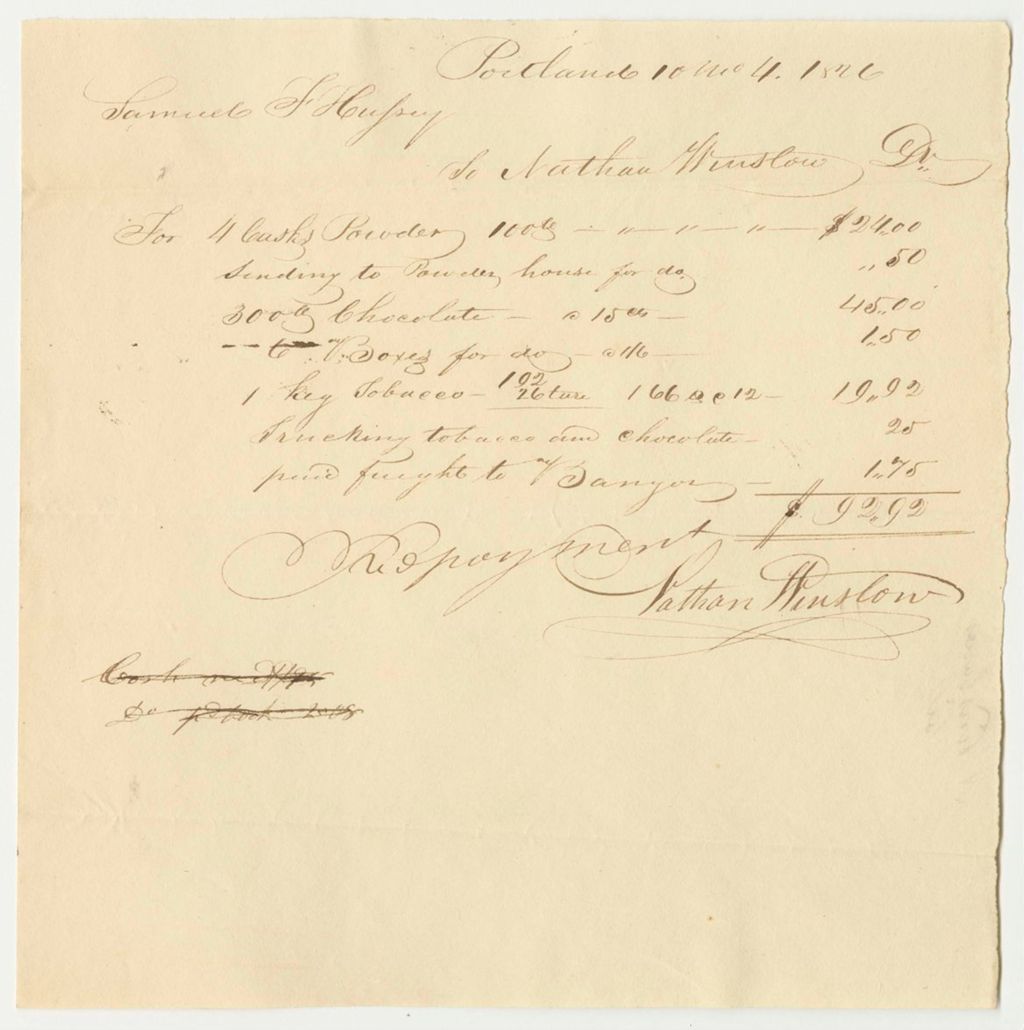 Portland 10 Mo 4. 1826
Samuel F Hussey
To Nathan Winslow Dr.
For 4 Casks Powder 100lb — „ — „ — „ — $24.00
Sending to Powder house for do „50
300lb Chocolate — a 15cts — 45.00
Boxes for do — a 1/6 — 1.50
1 Keg Tobacco — 192
26 tare 166 a c12 — 19.92
Trucking tobacco and chocolate — 25
paid freight to Bangor — 1.75
$ 92.92
Recd payment
Nathan Winslow
Cash
Do